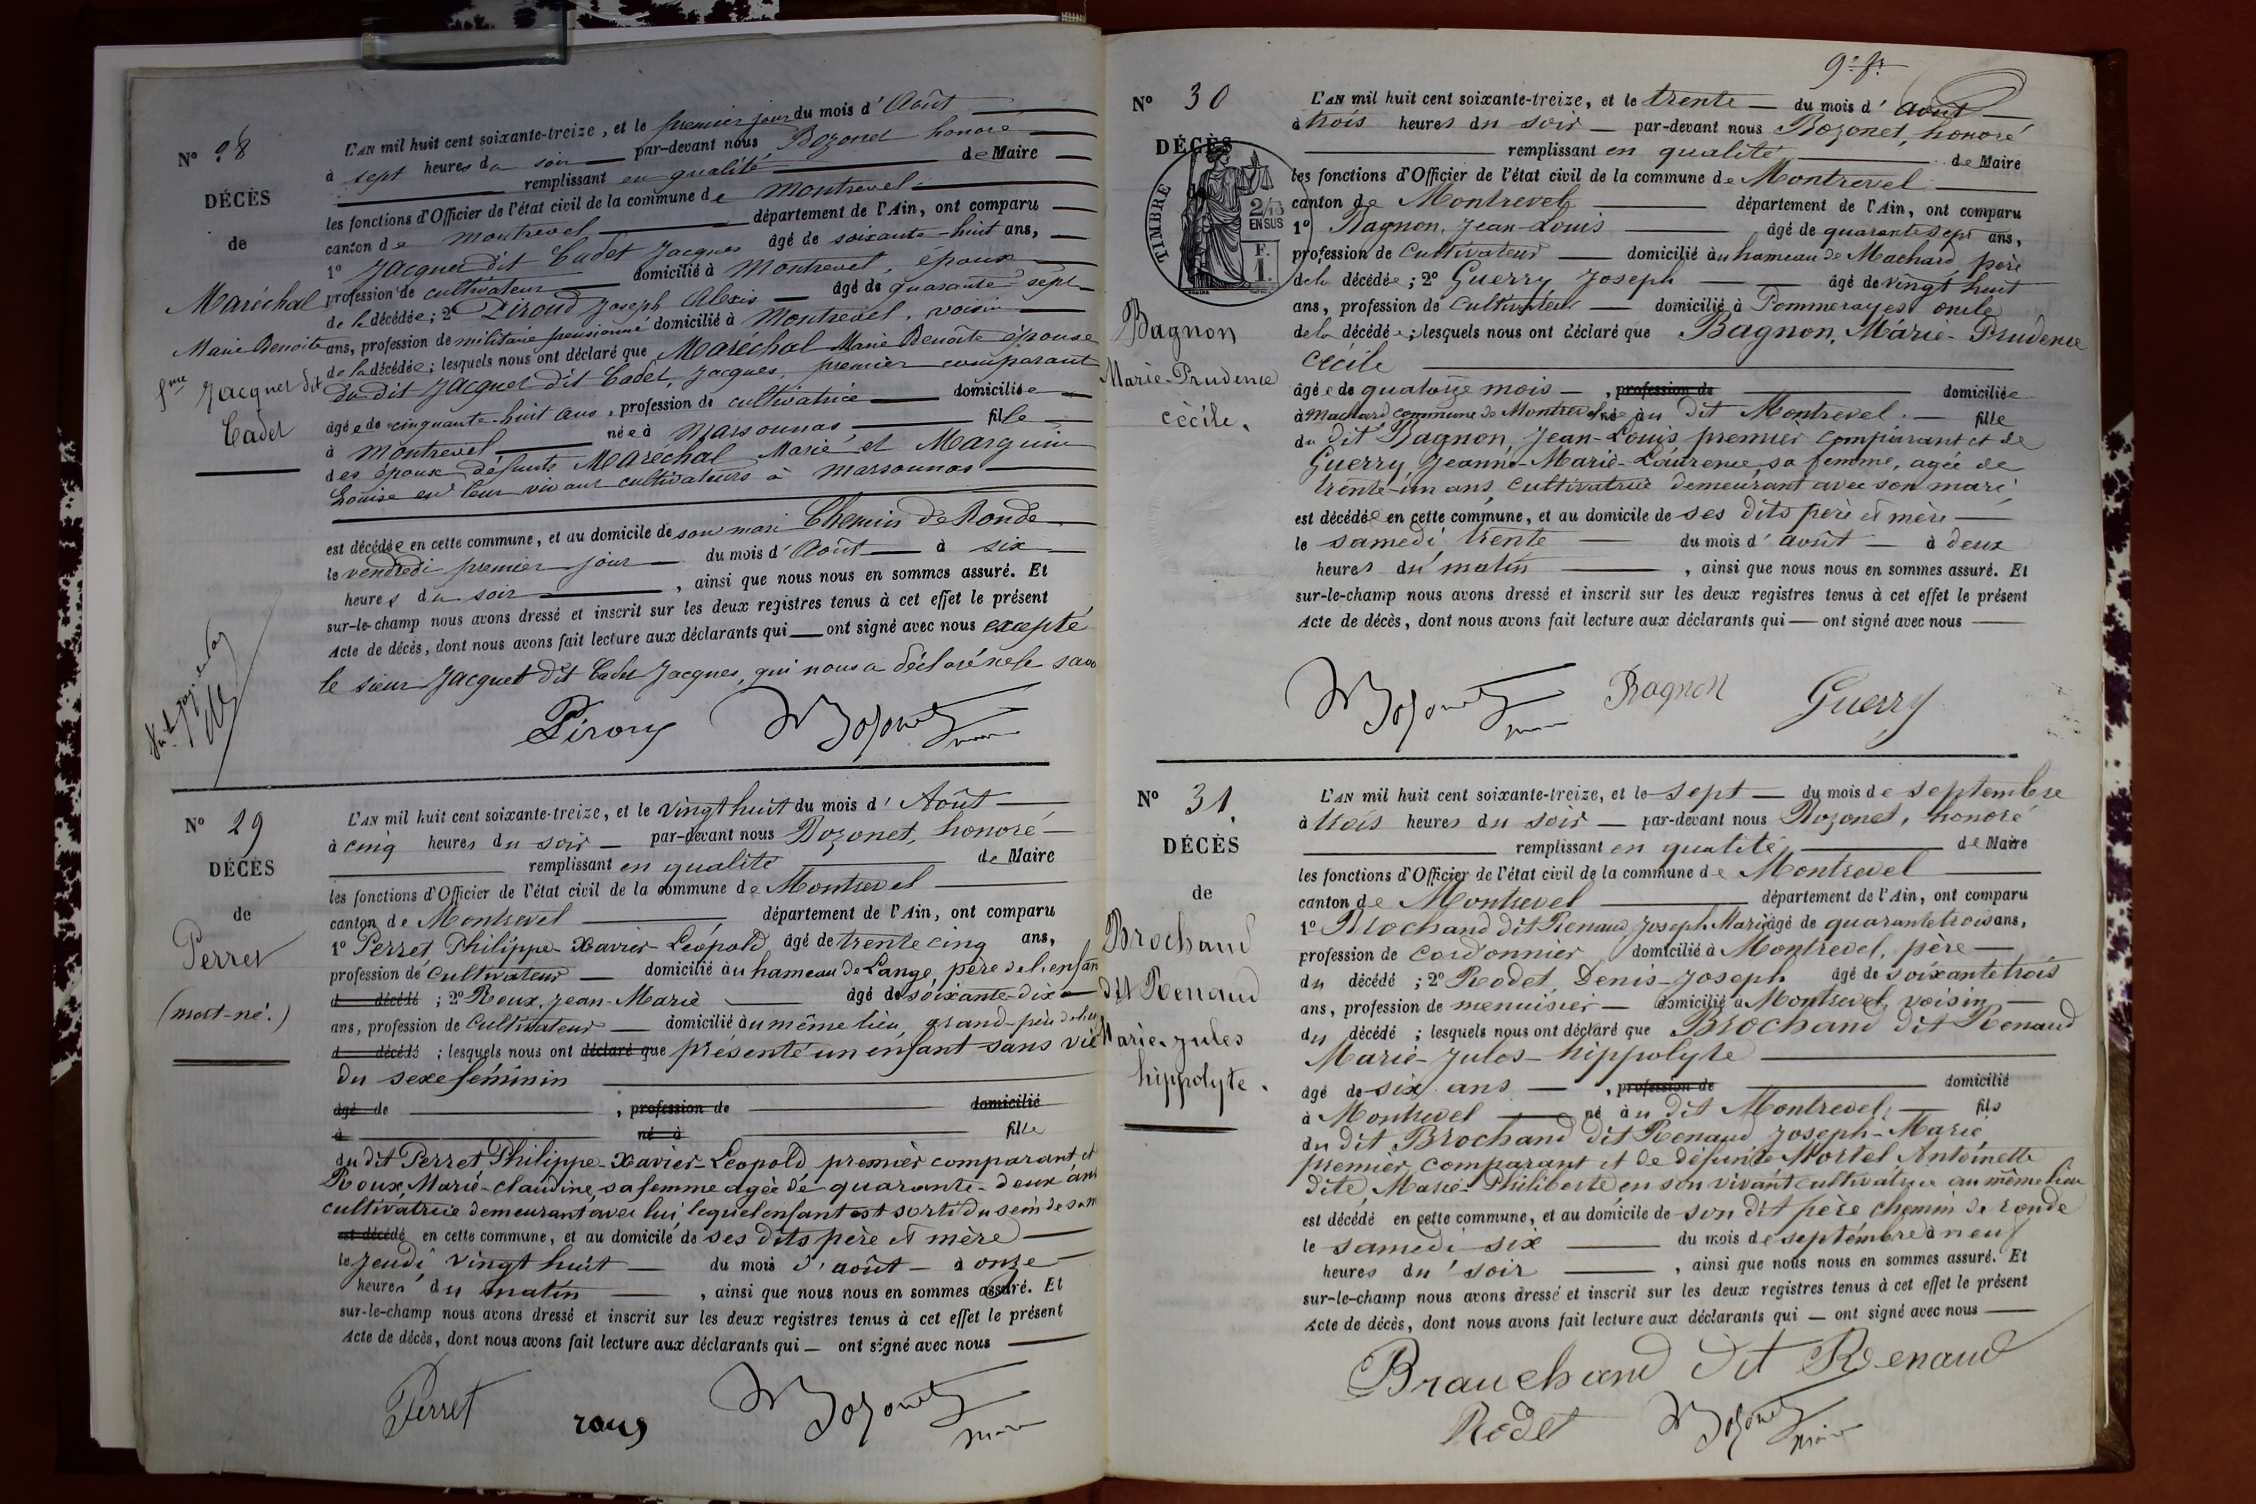 N° 28
DÉCÈS
de
Maréchal
Marie Benoite
fme Jacquet dit
Cadet
L'AN mil huit cent soixante-treize, et le premier jour du mois d'Août
à sept heures du soir par-devant nous Bozonet honoré
remplissant en qualité de Maire
les fonctions d'Officier de l'état civil de la commune de Montrevel
canton de Montrevel département de l'Ain, ont comparu
1° Jacquet dit Cadet Jacques âgé de soixante-huit ans,
profession de cultivateur domicilié à Montrevel, époux
de la décédée; 2° Piroud Joseph Alexis âgé de quarante-sept
ans, profession de militaire pensionné domicilié à Montrevel, voisin
de la décédée; lesquels nous ont déclaré que Maréchal Marie Benoîte épouse
du dit Jacquet dit Cadet, Jacques, premier comparant
âgée de cinquante-huit ans, profession de cultivatrice domiciliée
à Montrevel née à Marsonnas fille
des époux défunts Maréchal Marie et Marguin
Louise en leur vivant cultivateurs à Marsonnas
est décédée en cette commune, et au domicile de son mari Chemin de Ronde
le vendredi premier jour du mois d'Août à six
heures du soir, ainsi que nous nous en sommes assuré. Et
sur-le-champ nous avons dressé et inscrit sur les deux registres tenus à cet effet le présent
Acte de décès, dont nous avons fait lecture aux déclarants qui ont signé avec nous excepté
le sieur Jacquet dit Cadet Jacques, qui nous a déclaré ne le savo
N° 29
DÉCÈS
de
Perret
(mort-né.)
L'AN mil huit cent soixante-treize, et le vingt huit du mois d'Août
à cinq heures du soir par-devant nous Bozonet, honoré
remplissant en qualité de Maire
les fonctions d'Officier de l'état civil de la commune de Montrevel
canton de Montrevel département de l'Ain, ont comparu
1° Perret Philippe-Xavier-Léopold âgé de trente cinq ans,
profession de cultivateur domicilié au hameau de Lange, père de l'enfan
d décédé; 2° Roux, Jean-Marie âgé de soixante-dix
ans, profession de cultivateur domicilié au même lieu, grand-père
d décédé; lesquels nous ont déclaré que présenté un enfant sans vie
du sexe féminin
âgé de, profession de domicilié
à né à fille
du dit Perret Philippe-Xavier-Léopold premier comparant et
Roux, Marie-Claudine, sa femme agée de quarante-deux ans
cultivatrice demeurant avec lui, lequel enfant est sorti du sein de sa m
est décédé en cette commune, et au domicile de ses dits père et mère
le Jeudi vingt huit du mois d'août à onze
heures du matin, ainsi que nous nous en sommes assuré. Et
sur-le-champ nous avons dressé et inscrit sur les deux registres tenus à cet effet le présent
Acte de décès, dont nous avons fait lecture aux déclarants qui ont signé avec nous
Perret
roux
Bozonet
maire
9e ft
N° 30
DÉCÈS
TIMBRE
2/10
EN SUS
F.
1.
Bagnon
Marie-Prudence
cécile.
L'AN mil huit cent soixante-treize, et le trente du mois d'août
à trois heures du soir par-devant nous Bozonet, honoré
remplissant en qualité de Maire
les fonctions d'Officier de l'état civil de la commune de Montrevel
canton de Montrevel département de l'Ain, ont comparu
1° Bagnon, Jean-Louis âgé de quarante sept ans,
profession de cultivateur domicilié au hameau de Machard père
de la décédée; 2° Guerry Joseph âgé de vingt huit
ans, profession de cultivateur domicilié à Pommerayes oncle
de la décédée; lesquels nous ont déclaré que Bagnon, Marie-Prudence
Cécile
âgée de quatorze mois, profession de domiciliée
à Machard commune de Montrevel née au dit Montrevel fille
du dit Bagnon, Jean-Louis premier comparant et de
Guerry, Jeanne-Marie-Laurence sa femme, agée de
trente-un ans, cultivatrice demeurant avec son mari
est décédée en cette commune, et au domicile de ses dits père et mère
le samedi trente du mois d'août à deux
heures du matin, ainsi que nous nous en sommes assuré. Et
sur-le-champ nous avons dressé et inscrit sur les deux registres tenus à cet effet le présent
Acte de décès, dont nous avons fait lecture aux déclarants qui ont signé avec nous
Bozonet
maire
Bagnon
Guerry
N° 31.
DÉCÈS
de
Brochand
dit Renaud
Marie-Jules
hippolyte.
L'AN mil huit cent soixante-treize, et le sept du mois de septembre
à trois heures du soir par-devant nous Bozonet, honoré
remplissant en qualité de Maire
les fonctions d'Officier de l'état civil de la commune de Montrevel
canton de Montrevel département de l'Ain, ont comparu
1° Brochand dit Renaud Joseph-Marie âgé de quarante trois ans,
profession de cordonnier domicilié à Montrevel, père
du décédé; 2° Rodet, Denis-Joseph âgé de soixante trois
ans, profession de menuisier domicilié à Montrevel, voisin
du décédé; lesquels nous ont déclaré que Brochand dit Renaud
Marie-Jules-hippolyte
âgé de six ans, profession de domicilié
à Montrevel né au dit Montrevel fils
du dit Brochand dit Renaud Joseph-Marie
premier comparant et de défunte Mortel Antoinette
dite Marie-Philiberte en son vivant cultivatrice au même lieu
est décédé en cette commune, et au domicile de son dit père chemin de ronde
le samedi six du mois de septembre à neuf
heures du soir, ainsi que nous nous en sommes assuré. Et
sur-le-champ nous avons dressé et inscrit sur les deux registres tenus à cet effet le présent
Acte de décès, dont nous avons fait lecture aux déclarants qui ont signé avec nous
Brauchand dit Renaud
Rodet
Bozonet
maire